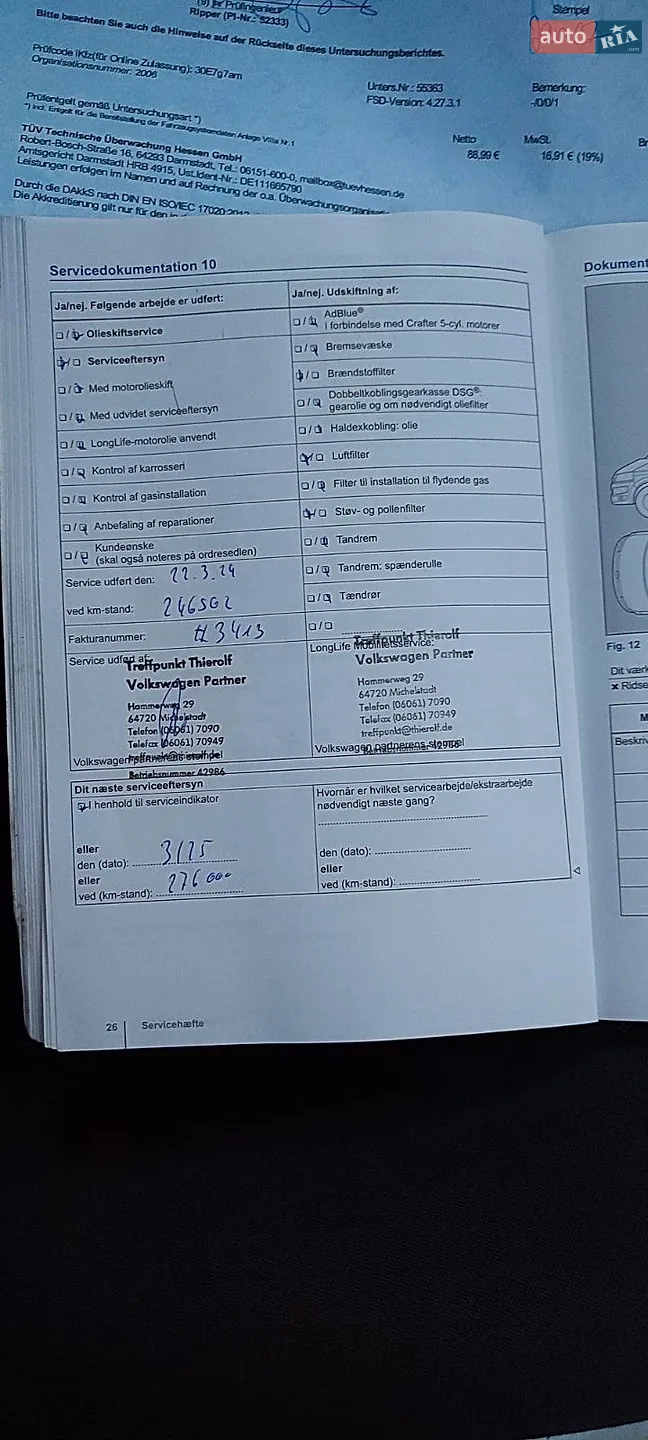 (9) Ihr Prüfingenieur
Ripper (PI-Nr.: 52333)
Stempel
auto RIA .com
Bitte beachten Sie auch die Hinweise auf der Rückseite dieses Untersuchungsberichtes.
Prüfcode iKfz(für Online Zulassung): 30E7g7am
Organisationsnummer: 2006
Unters.Nr.: 55363
FSD-Version: 4.27.3.1
Bemerkung:
-/0/0/1
Prüfentgelt gemäß Untersuchungsart *)
*) incl. Entgelt für die Bereitstellung der Fahrzeugsystemdaten Anlage VIIIa Nr.1
Netto
MwSt.
88,99 €
16,91 € (19%)
TÜV Technische Überwachung Hessen GmbH
Robert-Bosch-Straße 16, 64293 Darmstadt, Tel.: 06151-600-0, mailbox@tuevhessen.de
Amtsgericht Darmstadt HRB 4915, Ust.Ident-Nr.: DE111665790
Leistungen erfolgen im Namen und auf Rechnung der o.a. Überwachungsorganisati
Durch die DAkkS nach DIN EN ISO/IEC 17020:2012
Die Akkreditierung gilt nur für den in
Servicedokumentation 10
Ja/nej. Følgende arbejde er udført:
Olieskiftservice
Serviceeftersyn
Med motorolieskift
Med udvidet serviceeftersyn
LongLife-motorolie anvendt
Kontrol af karrosseri
Kontrol af gasinstallation
Anbefaling af reparationer
Kundeønske
(skal også noteres på ordresedlen)
Service udført den: 22.3.24
ved km-stand: 246502
Fakturanummer: H3413
Ja/nej. Udskiftning af:
AdBlue®
i forbindelse med Crafter 5-cyl. motorer
Bremsevæske
Brændstoffilter
Dobbeltkoblingsgearkasse DSG®:
gearolie og om nødvendigt oliefilter
Haldexkobling: olie
Luftfilter
Filter til installation til flydende gas
Støv- og pollenfilter
Tandrem
Tandrem: spænderulle
Tændrør
Service udført af:
Treffpunkt Thierolf
Volkswagen Partner
Hammerweg 29
64720 Michelstadt
Telefon (06061) 7090
Telefax (06061) 70949
treffpunkt@thierolf.de
Volkswagen partnerens stempel
Betriebsnummer 42986
LongLife Mobilitetsservice:
Treffpunkt Thierolf
Volkswagen Partner
Hammerweg 29
64720 Michelstadt
Telefon (06061) 7090
Telefax (06061) 70949
treffpunkt@thierolf.de
Volkswagen partnerens stempel
Betriebsnummer 42986
Dit næste serviceeftersyn
I henhold til serviceindikator
eller
den (dato): 3/25
eller
ved (km-stand): 276000
Hvornår er hvilket servicearbejde/ekstraarbejde
nødvendigt næste gang?
den (dato):
eller
ved (km-stand):
26
Servicehæfte
Dokument
Fig. 12
Dit vær
x Ridse
M
Beskriv